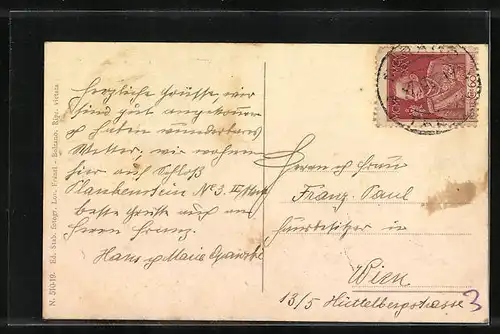 Herzliche Grüße, wir
sind gut angekommen
& haben wunderbares
Wetter, wir wohnen
hier auf Schloß
Plankenstein N° 3. II/Stock
beste Grüße auch an
Herrn
Hans & Marie
Herrn & Frau
Franz Paul
Hausbesitzer in
Wien
13/5 Hüttelbergstrasse 3
N. 51019. Ed. Stab. Lor. Fränzl - Bolzano. Rip. vietata